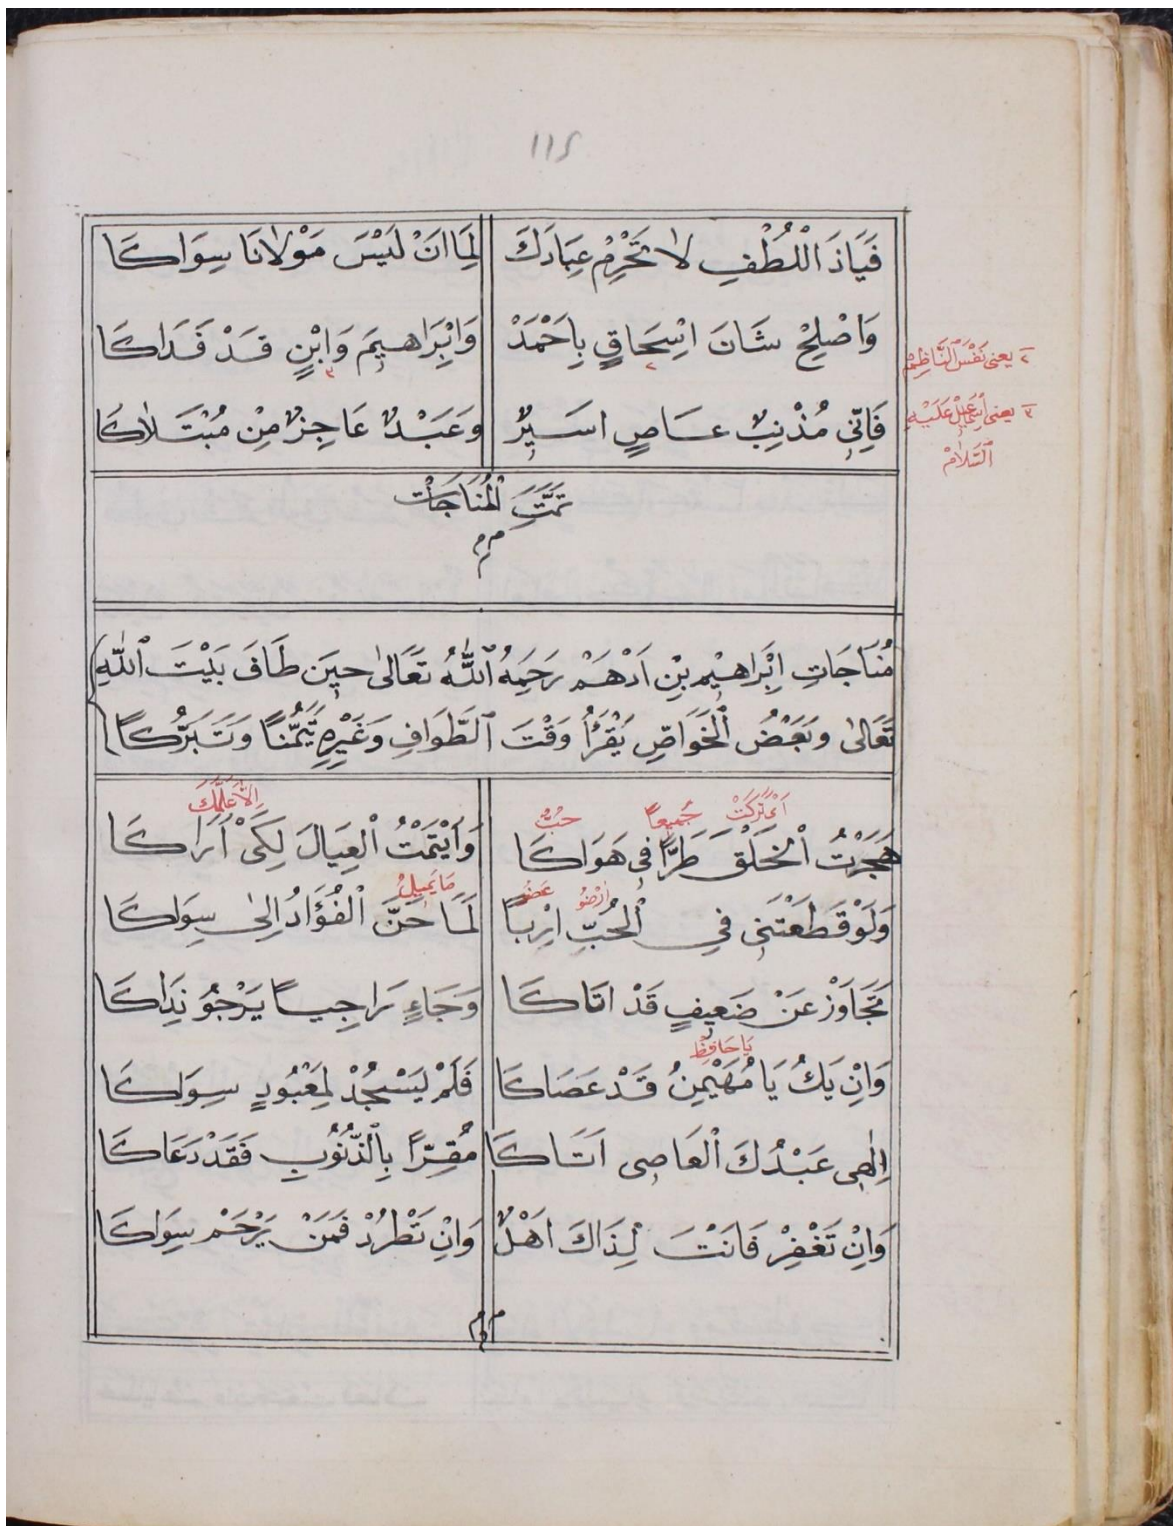 ١١٤
فَيَاذَ اْللُطْفِ لَا تَحْرِمْ عِبَادَكَ لِمَا اَنْ لَيْسَ مَوْلَانَا سِوَاكَا
وَاَصْلِحْ شَانَ اِسْحَاقٍ بِاَحْمَدْ ٢ وَاِبْرَاهِيمَ وَابْنٍ قَدْ فَدَاكَا ٣
٢ يعنى نَفْسَ النَّاظِمْ
فَاِنِّي مُذْنِبٌ عَاصٍ اَسِيرٌ وَعَبْدٌ عَاجِزٌ مِنْ مُبْتَلَاكَا
٣ يعنى اِسْمَعِيْلْ عَلَيْهِ
السَّلَامْ
تَمَّتِ الْمُنَاجَاتْ
م م م
مُنَاجَاتِ اِبْرَاهِيْم بْنِ اَدْهَمْ رَحِمَهُ اللّٰهُ تَعَالٰى حِينَ طَافَ بَيْتَ اللّٰهِ
تَعَالٰى وَبَعْضُ الْخَوَاصِّ يَقْرَأُ وَقْتَ الطَّوَافِ وَغَيْرِهِ تَيَمُّنًا وَتَبَرُّكًا
اَىْ تَرَكْتُ جَمِيعًا حُبِّ
هَجَرْتُ الْخَلْقَ طَرًّا فِي هَوَاكَا وَاَيْتَمْتُ الْعِيَالَ لِكَىْ اَرَاكَا
عضو مَا يَمِيلُ
وَلَوْ قَطَعْتَنِي فِي الْحُبِّ اِرْبًا لَمَا حَنَّ الْفُؤَادُ اِلٰى سِوَاكَا
تَجَاوَزْ عَنْ ضَعِيفٍ قَدْ اَتَاكَا وَجَاءٍ رَاجِيًا يَرْجُو نِدَاكَا
يَا حَافِظُ
وَاِنْ يَكُ يَا مُهَيْمِنُ قَدْ عَصَاكَا فَلَمْ يَسْجُدْ لِمَعْبُودٍ سِوَاكَا
اِلٰهِى عَبْدُكَ الْعَاصِى اَتَاكَا مُقِرًّا بِالذُّنُوبِ فَقَدْ دَعَاكَا
وَاِنْ تَغْفِرْ فَاَنْتَ لِذَاكَ اَهْلٌ وَاِنْ تَطْرُدْ فَمَنْ يَرْحَمْ سِوَاكَا
م م م